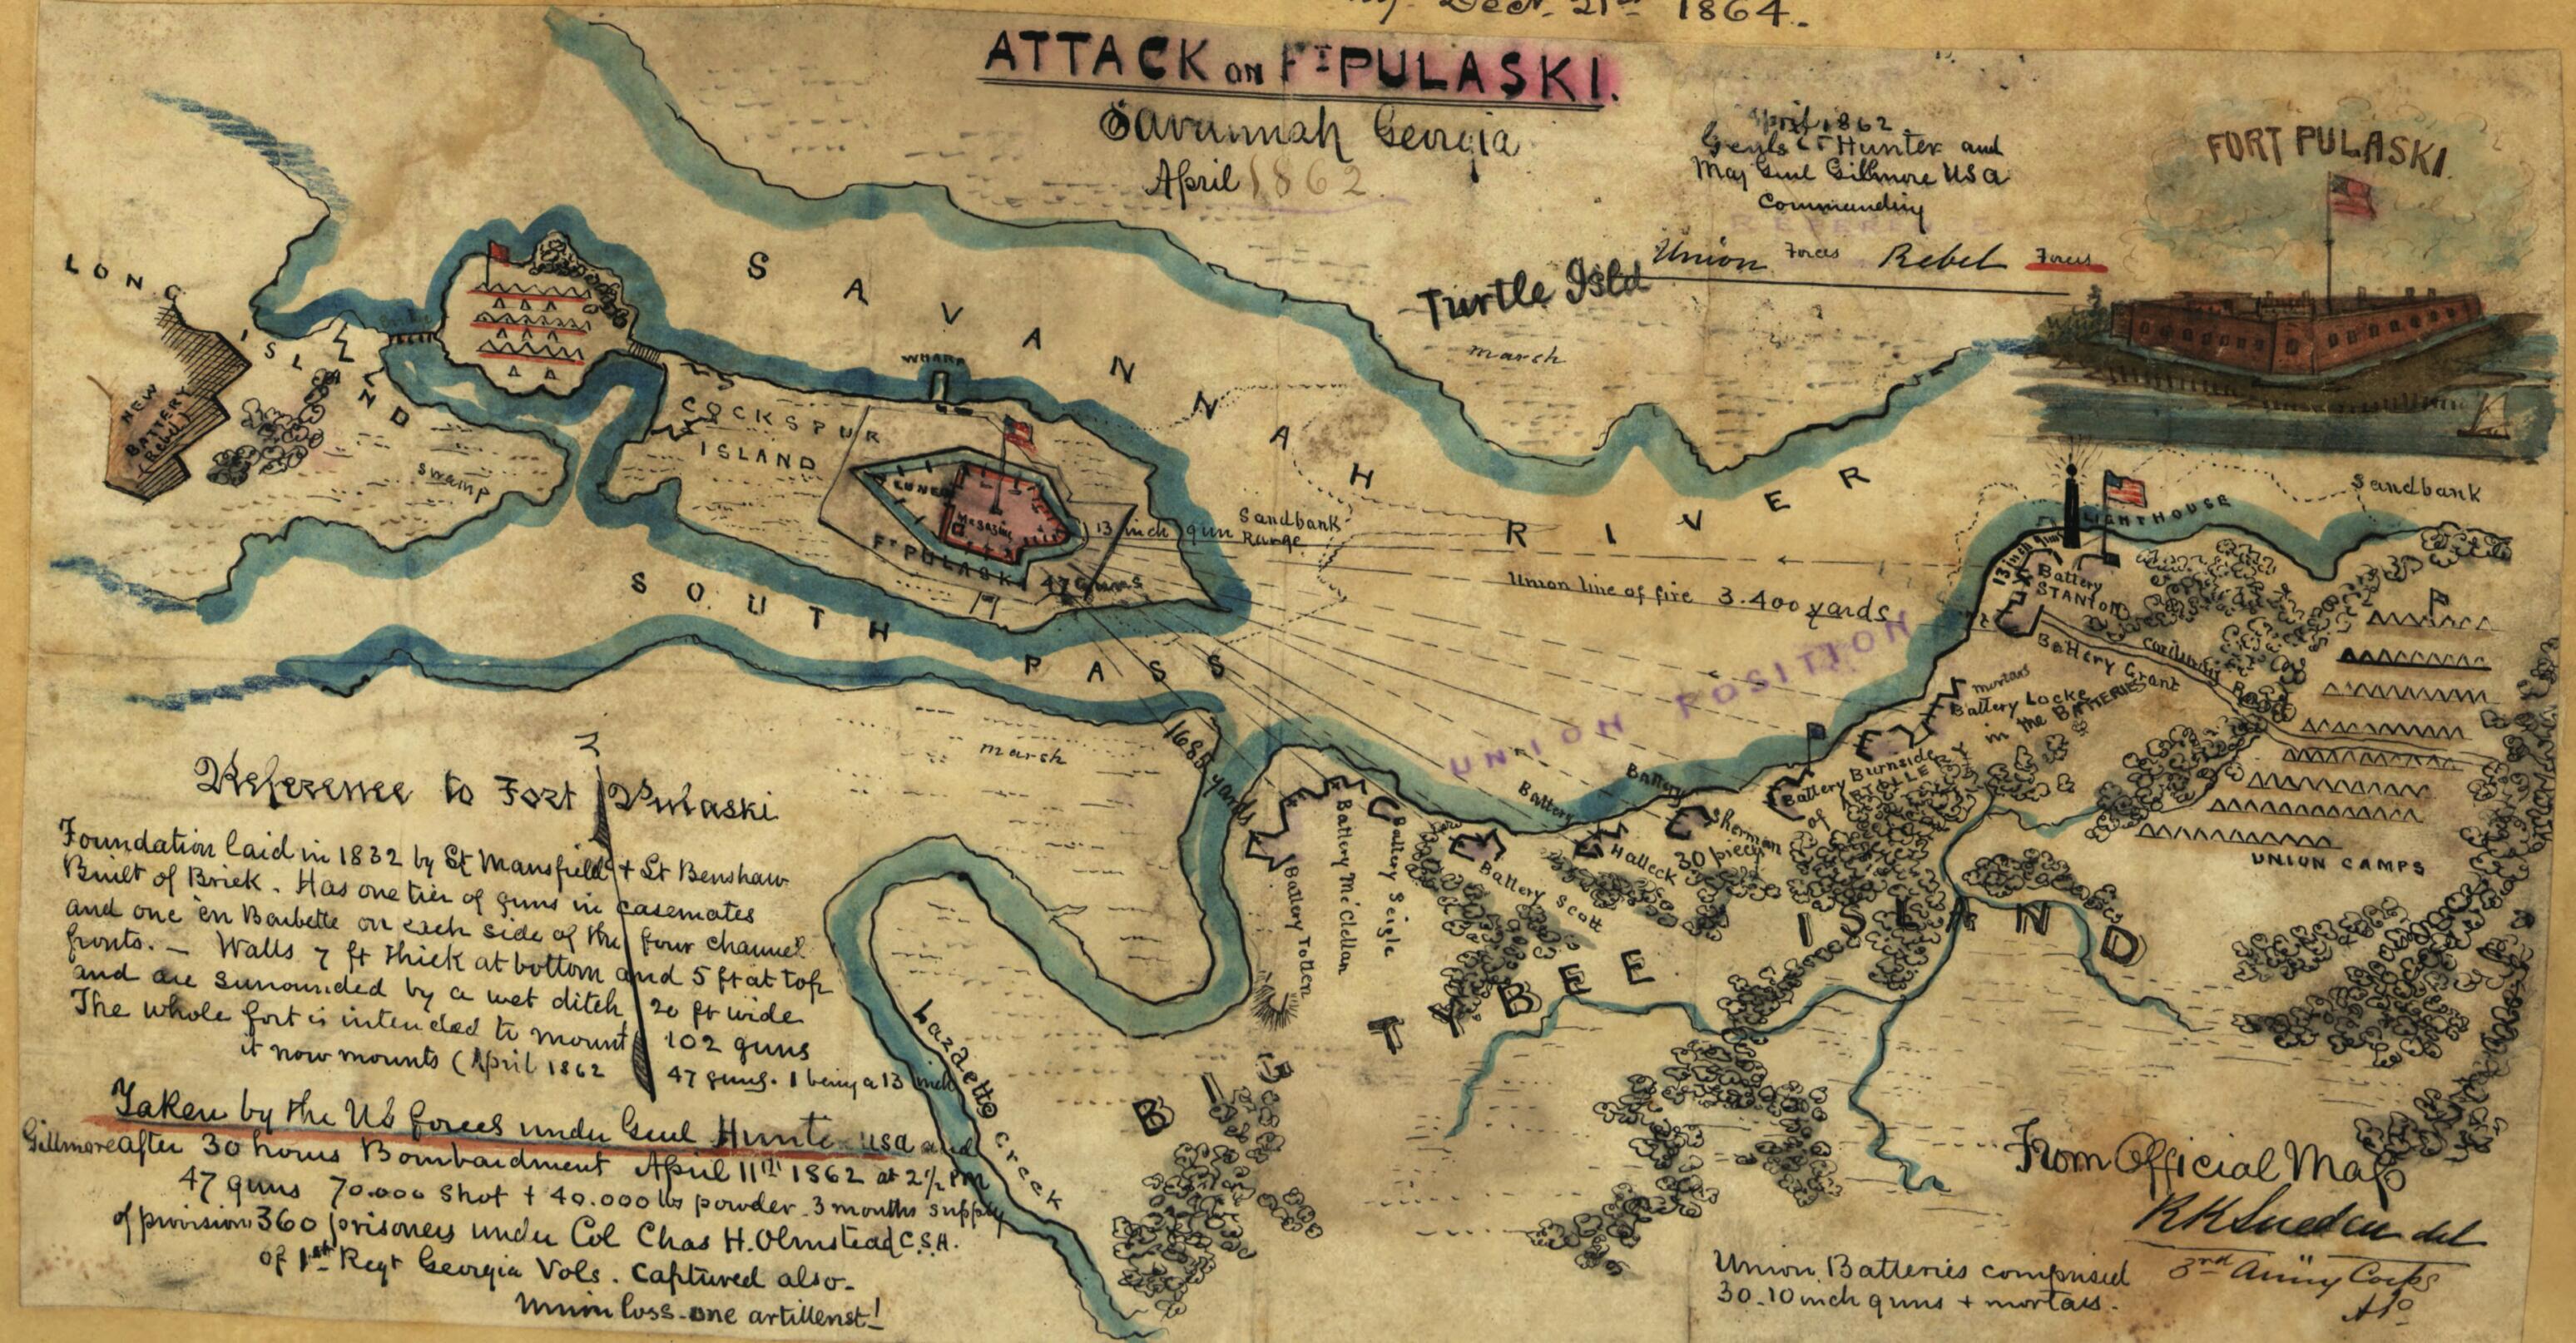 Dect. 21st 1864.
ATTACK ON FT PULASKI.
Savannah Georgia
April 1862
April 1862
Genls Hunter and
Maj Genl Gillmore USA
Commanding
Union Forces Rebel Forces
FORT PULASKI.
LONG ISLAND
NEW BATTERY (Rebel)
Bridge
swamp
SAVANNAH RIVER
WHARF
COCKSPUR
ISLAND
Magazine
FT PULASKI
47 Guns
13 inch gun
Sandbank
Range
Turtle Isld
march
Sandbank
LIGHTHOUSE
Union line of fire 3.400 yards
UNION POSITION
SOUTH PASS
march
1685 yards
13 inch gun
Battery
STANTON
Battery Grant
mortars
Battery Locke
in the BATTERIES
Battery Burnside
of ARTILLERY
Battery
Sherman
30 pieces
Battery
Halleck
Battery Scott
Battery Seigle
Battery McClellan
Battery Totten
UNION CAMPS
TYBEE ISLAND
BIG
Lazaetto creek
N
Reference to Fort Pulaski
Foundation laid in 1832 by Lt Mansfield + Lt Benshaw
Built of Brick. Has one tier of guns in casemates
and one en Barbette on each side of the four channel
fronts. — Walls 7 ft thick at bottom and 5 ft at top
and are surrounded by a wet ditch 20 ft wide
The whole fort is intended to mount 102 guns
it now mounts (April 1862 47 guns. 1 being a 13 inch
Taken by the US forces under Genl Hunter USA and
Gillmore after 30 hours Bombardment April 11th 1862 at 2½ PM
47 guns 70.000 shot + 40.000 lbs powder. 3 months supply
of provision 360 prisoners under Col Chas H. Olmstead C.S.A.
of 1st Regt Georgia Vols. Captured also-
Union loss-one artillerist!
From Official Map
RK Sneden del
3rd Army Corps
Union Batteries comprised
30-10 inch guns + mortars.